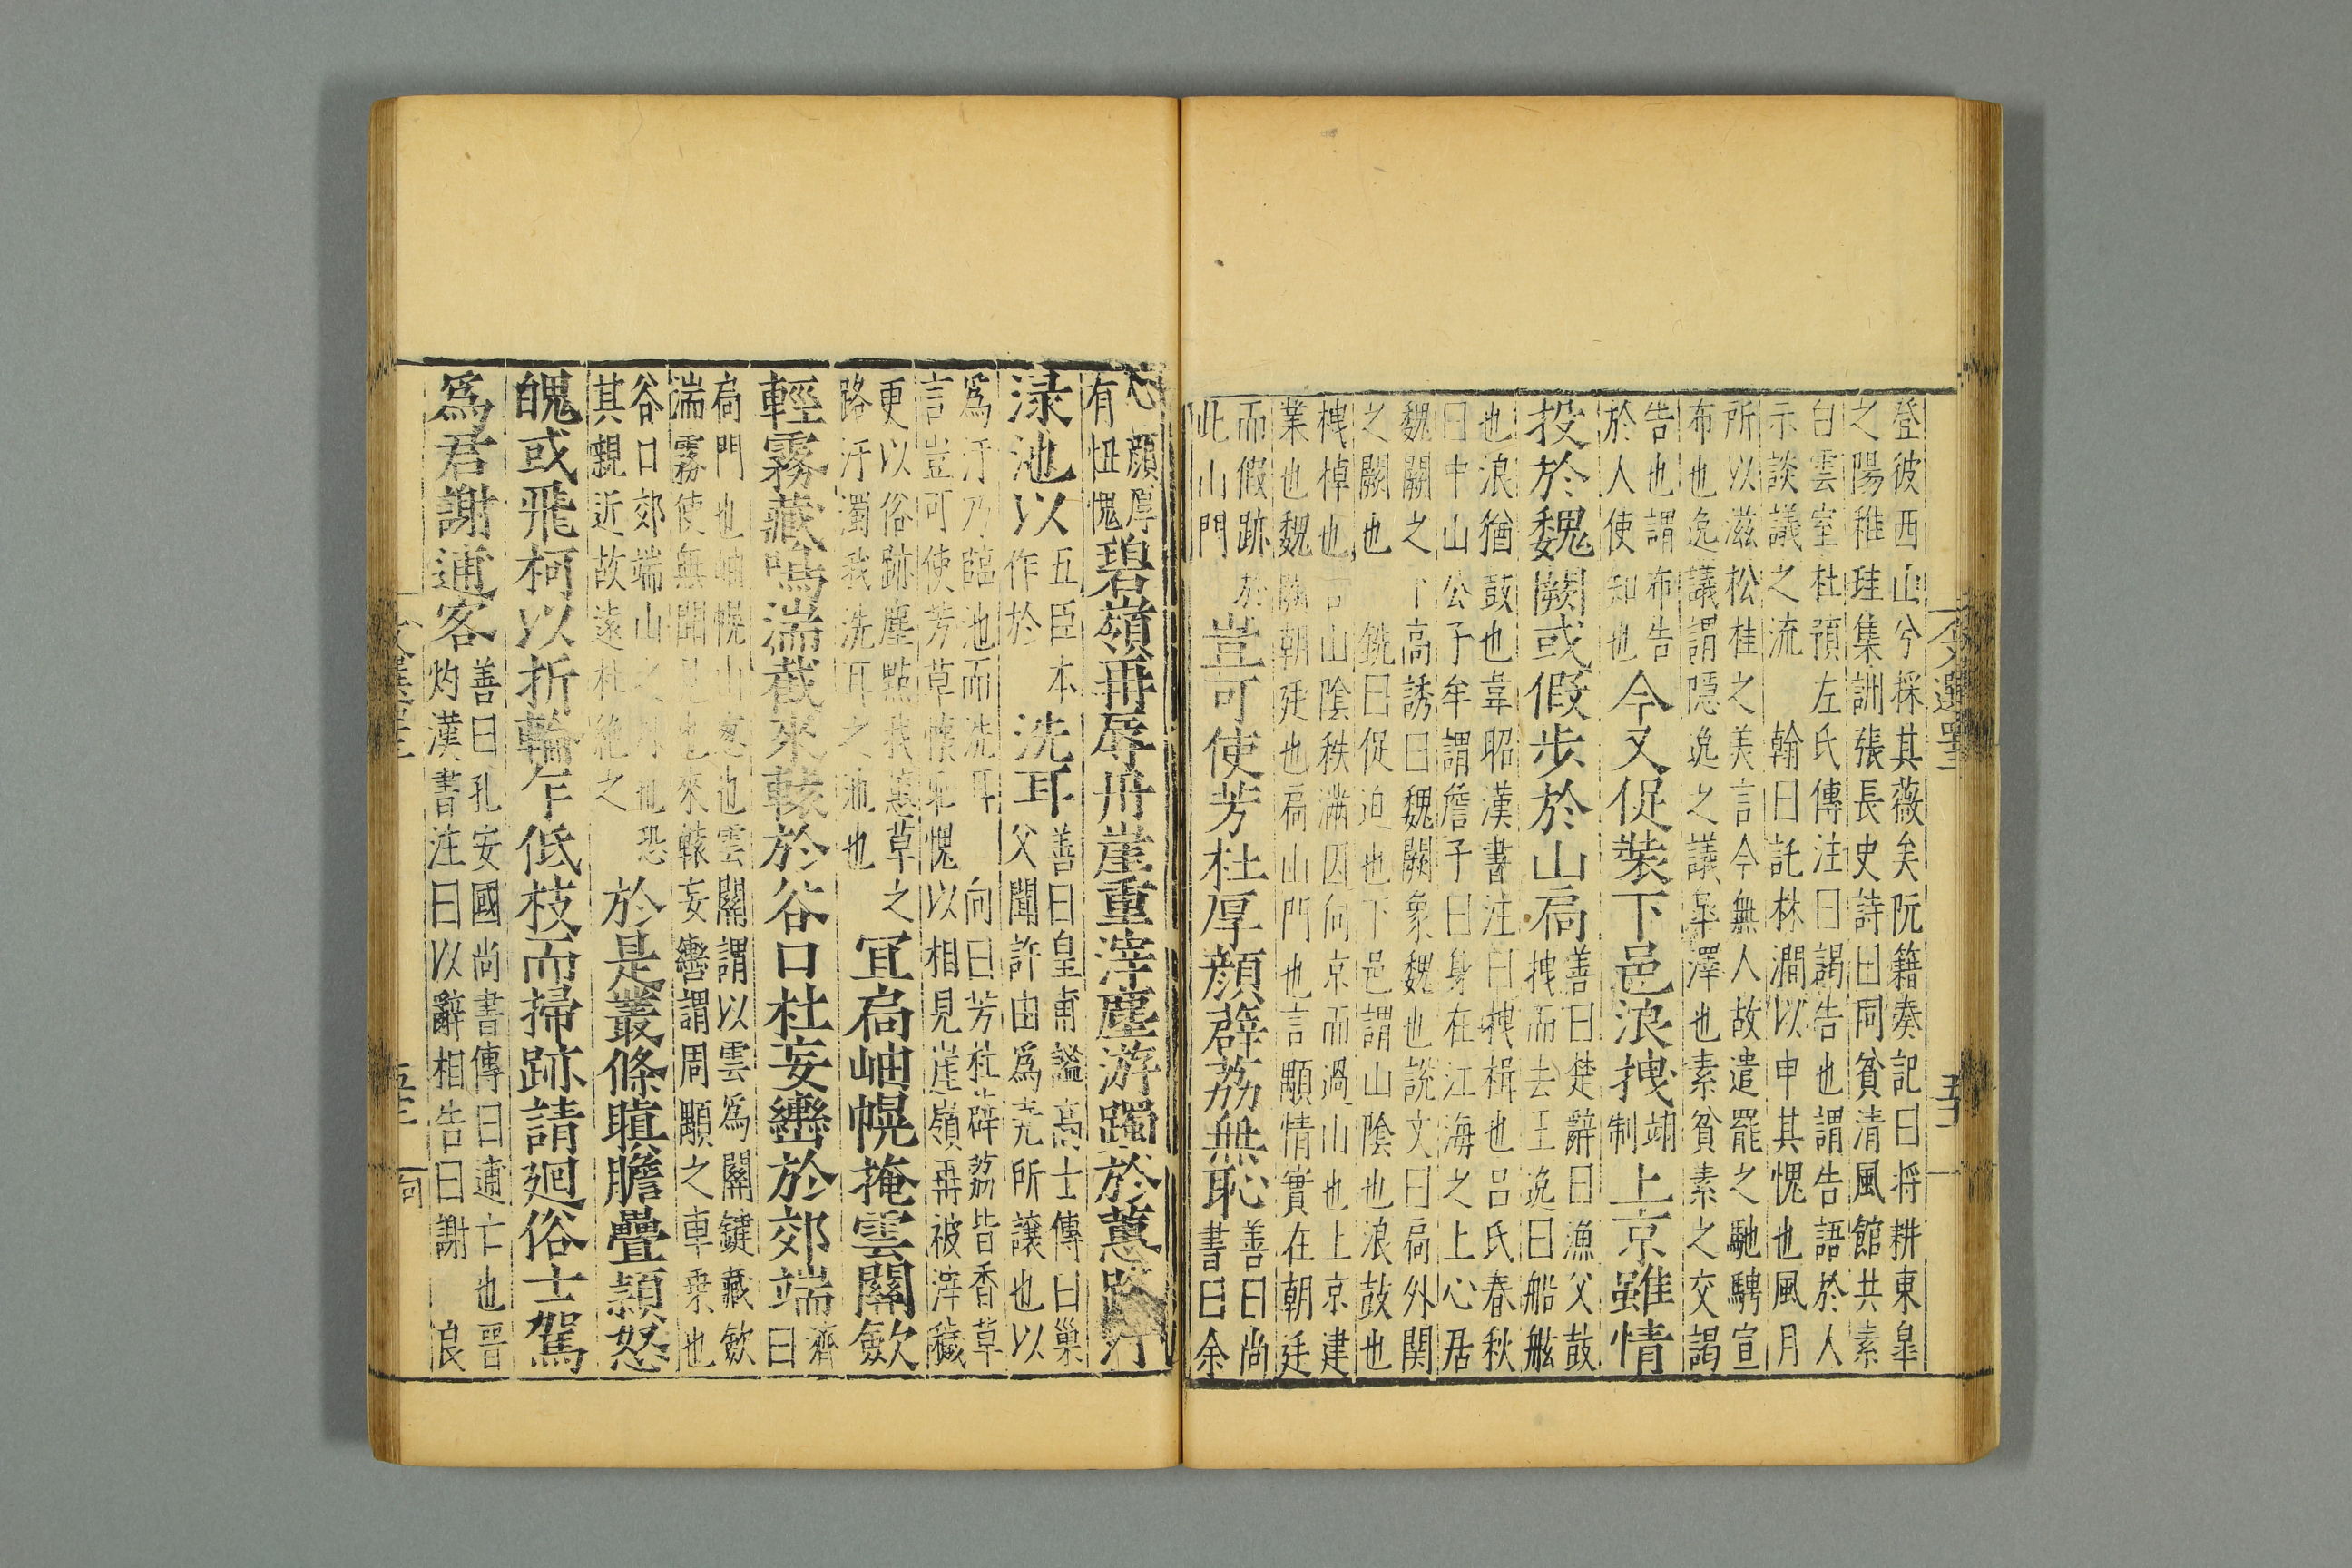 登彼西山兮採其薇矣阮籍奏記曰将耕東皐
之陽稚珪集詶張長史詩曰同貧清風館共素
白雲室杜預左氏傳注曰謁告也謂告語於人
示談議之流 翰曰託林澗以申其愧也風月
所以滋松桂之美言今無人故遣罷之馳騁宣
布也逸議謂隱逸之議皐澤也素貧素之交謁
告也謂布告
於人使知也
今又促裝下邑浪拽
翊
制
上京雖情
投於魏闕或假步於山扃
善曰楚辭曰漁父鼓
拽而去王逸曰船舷
也浪猶鼓也韋昭漢書注曰拽楫也吕氏春秋
曰中山公子牟謂詹子曰身在江海之上心居
魏闕之下高誘曰魏闕象魏也說文曰扃外関
之關也 銑曰促迫也下邑謂山陰也浪鼓也
拽棹也言山陰秩滿因向京而過山也上京建
業也魏闕朝廷也扃山門也言顒情實在朝廷
而假跡於
此山門
豈可使芳杜厚顏薜荔無恥
善曰尚
書曰余
心顏厚
有忸愧
碧嶺再辱丹崖重滓塵游躅於蕙路汙
渌池以
五臣本
作於
洗耳
善曰皇甫謐高士傳曰巢
父聞許由為尭所讓也以
為汙乃臨池而洗耳 向曰芳杜薜荔皆香草
言豈可使芳草懷恥愧以相見崖嶺再被滓穢
更以俗跡塵點我蕙草之
路汙濁我洗耳之池也
冝扃岫幌掩雲關歛
輕霧藏鳴湍截來轅於谷口杜妄轡於郊端
濟
曰
扃門也岫幌山窓也雲關謂以雲為關鍵藏歛
湍霧使無聞見也來轅妄轡謂周顒之車乗也
谷口郊端山之外也恐
其親近故遠杜絶之
於是叢條瞋膽疊頴怒
魄或飛柯以折輪乍低枝而掃跡請廻俗士駕
為君謝逋客
善曰孔安國尚書傳曰逋亡也晋
灼漢書注曰以辭相告曰謝 良